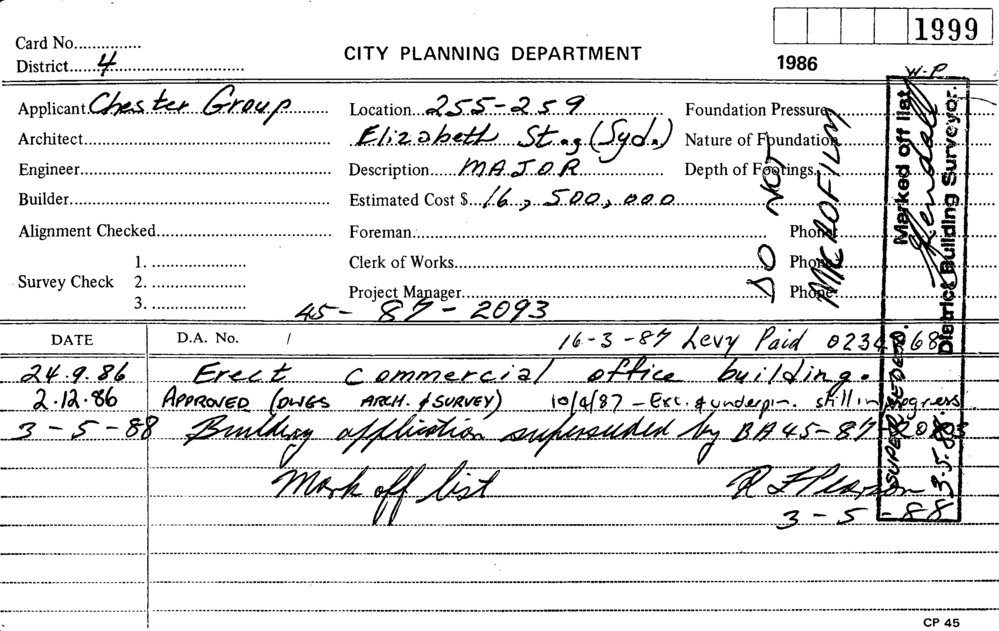 1999
Card No...............
CITY PLANNING DEPARTMENT
District...... 4
1986
W.P
Applicant Chester Group
Location... 255-259
Foundation Pressure
Architect
Elizabeth St., (Syd.)
Nature of Foundation
Engineer
Description MAJOR
Depth of Footings
Builder
Estimated Cost $ 16, 500, 000
Alignment Checked
Foreman
Phone
Survey Check 1.
2.
3.
Clerk of Works
Phone
Project Manager
Phone
45-87-2093
DO NOT
MICROFILM
Marked off list
District Building Surveyor.
SUPERSEDED.
3.5.88
DATE
D.A. No. /
16-3-87 Levy Paid
24.9.86 Erect commercial office building.
2.12.86 APPROVED (DWGS ARCH. & SURVEY) 10/4/87 - Exc. & underpin. still in progress
3-5-88 Building application superseded by BA 45-87-2093
Mark off list
R F Pearson
3-5-88
CP 45